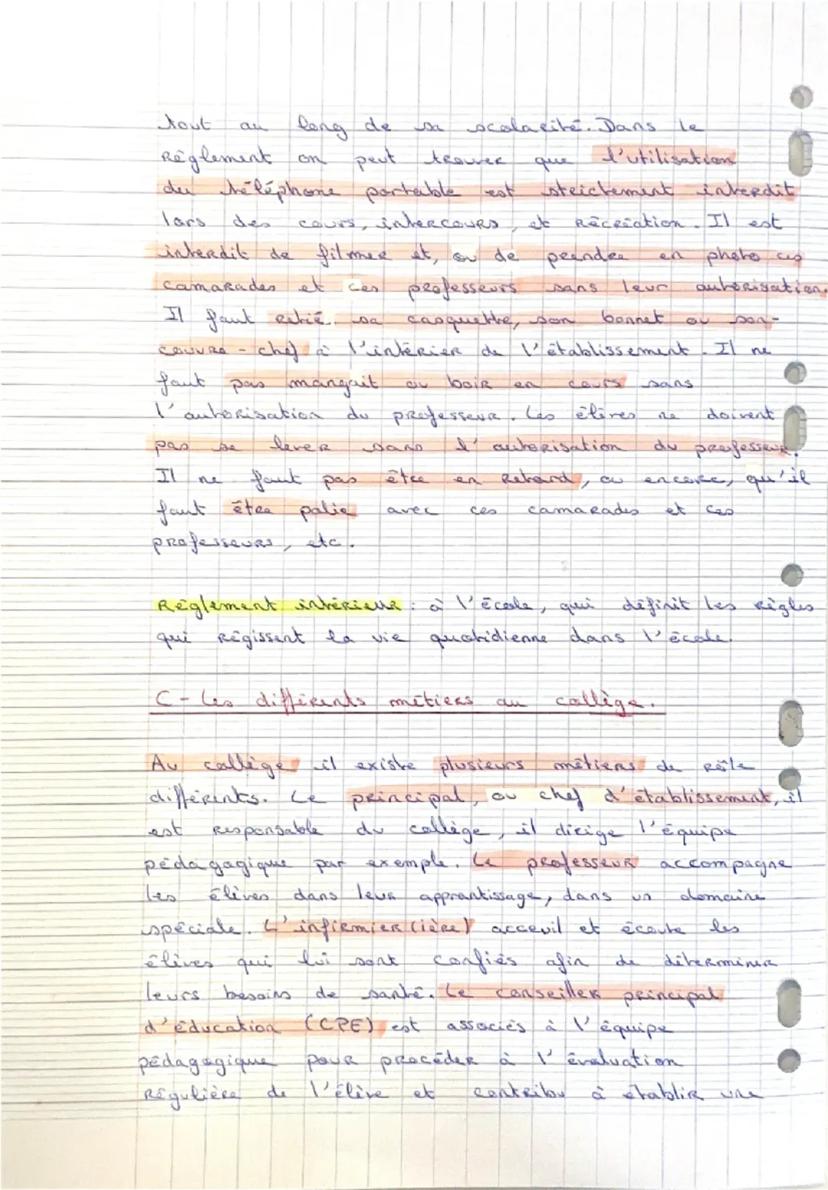 tout au long de sa scolarité. Dans le
Règlement on peut trouver que l'utilisation
du téléphone portable est strictement interdit
lors des cours, intercours, et Récréation. Il est
interdit de filmer et, ou de prendre en photo ces
camarades et ces professeurs sans leur autorisation.
Il faut retiré sa casquette, son bonnet ou son
couvre-chef à l'intérier de l'établissement. Il ne
faut pas mangait ou boir en cours sans
l'autorisation du professeur. Les élèves ne doivent
pas se lever sans l'autorisation du professeur.
Il ne faut pas être en Retard, ou encore, qu'il
faut être polie avec ces camarades et ces
professeurs, etc.
Règlement intérieur : à l'école, qui définit les règles
qui Régissent la vie quotidienne dans l'école.
C - Les différents métiers au collège.
Au collège il existe plusieurs métiers de rôle
différents. Le principal, ou chef d'établissement, il
est Responsable du collège, il dirige l'équipe
pédagagique par exemple. Le professeur accompagne
les élèves dans leur apprantissage, dans un domaine
spéciale. L'infirmier (ière) acceuil et écoute les
élèves qui lui sont confiés afin de déterminer
leurs besoins de santé. Le conseiller principal
d'éducation (CPE) est associés à l'équipe
pédagogique pour procéder à l'évaluation
Régulière de l'élève et contribu à établir une